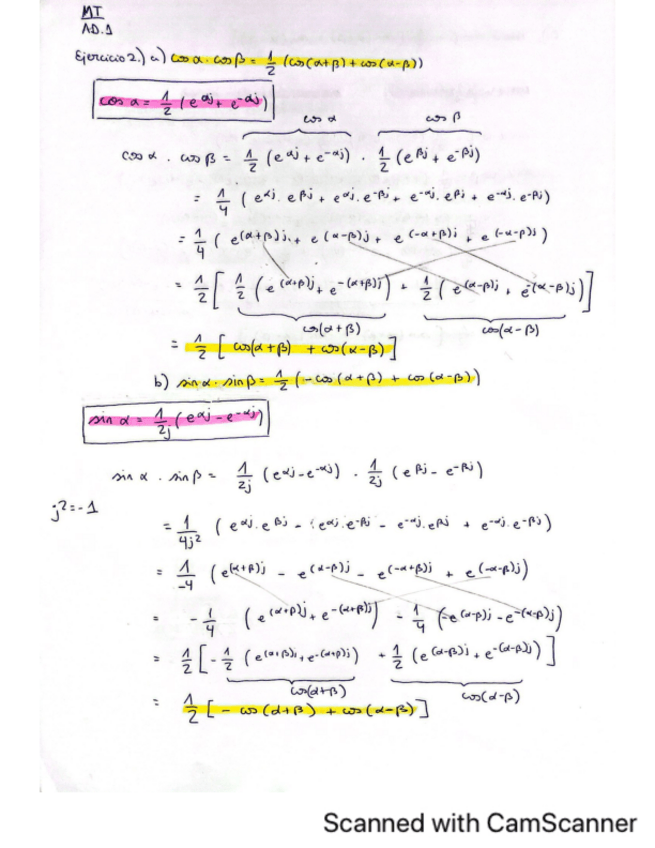 MT
AD.1
Ejercicio 2.) a) cos α · cos β = 1/2 (cos(α+β) + cos(α-β))
cos α = 1/2 (e^αj + e^-αj)
cos α cos β
cos α · cos β = 1/2 (e^αj + e^-αj) · 1/2 (e^βj + e^-βj)
= 1/4 (e^αj · e^βj + e^αj · e^-βj + e^-αj · e^βj + e^-αj · e^-βj)
= 1/4 (e^(α+β)j + e^(α-β)j + e^(-α+β)j + e^(-α-β)j)
= 1/2 [1/2 (e^(α+β)j + e^-(α+β)j) + 1/2 (e^(α-β)j + e^-(α-β)j)]
cos(α+β) cos(α-β)
= 1/2 [cos(α+β) + cos(α-β)]
b) sin α · sin β = 1/2 (-cos(α+β) + cos(α-β))
sin α = 1/2j (e^αj - e^-αj)
sin α · sin β = 1/2j (e^αj - e^-αj) · 1/2j (e^βj - e^-βj)
j² = -1
= 1/4j² (e^αj · e^βj - (e^αj · e^-βj - e^-αj · e^βj + e^-αj · e^-βj)
= 1/-4 (e^(α+β)j - e^(α-β)j - e^(-α+β)j + e^(-α-β)j)
= -1/4 (e^(α+β)j + e^-(α+β)j) - 1/4 (-e^(α-β)j - e^-(α-β)j)
= 1/2 [-1/2 (e^(α+β)j + e^-(α+β)j) + 1/2 (e^(α-β)j + e^-(α-β)j)]
cos(α+β) cos(α-β)
= 1/2 [-cos(α+β) + cos(α-β)]
Scanned with CamScanner